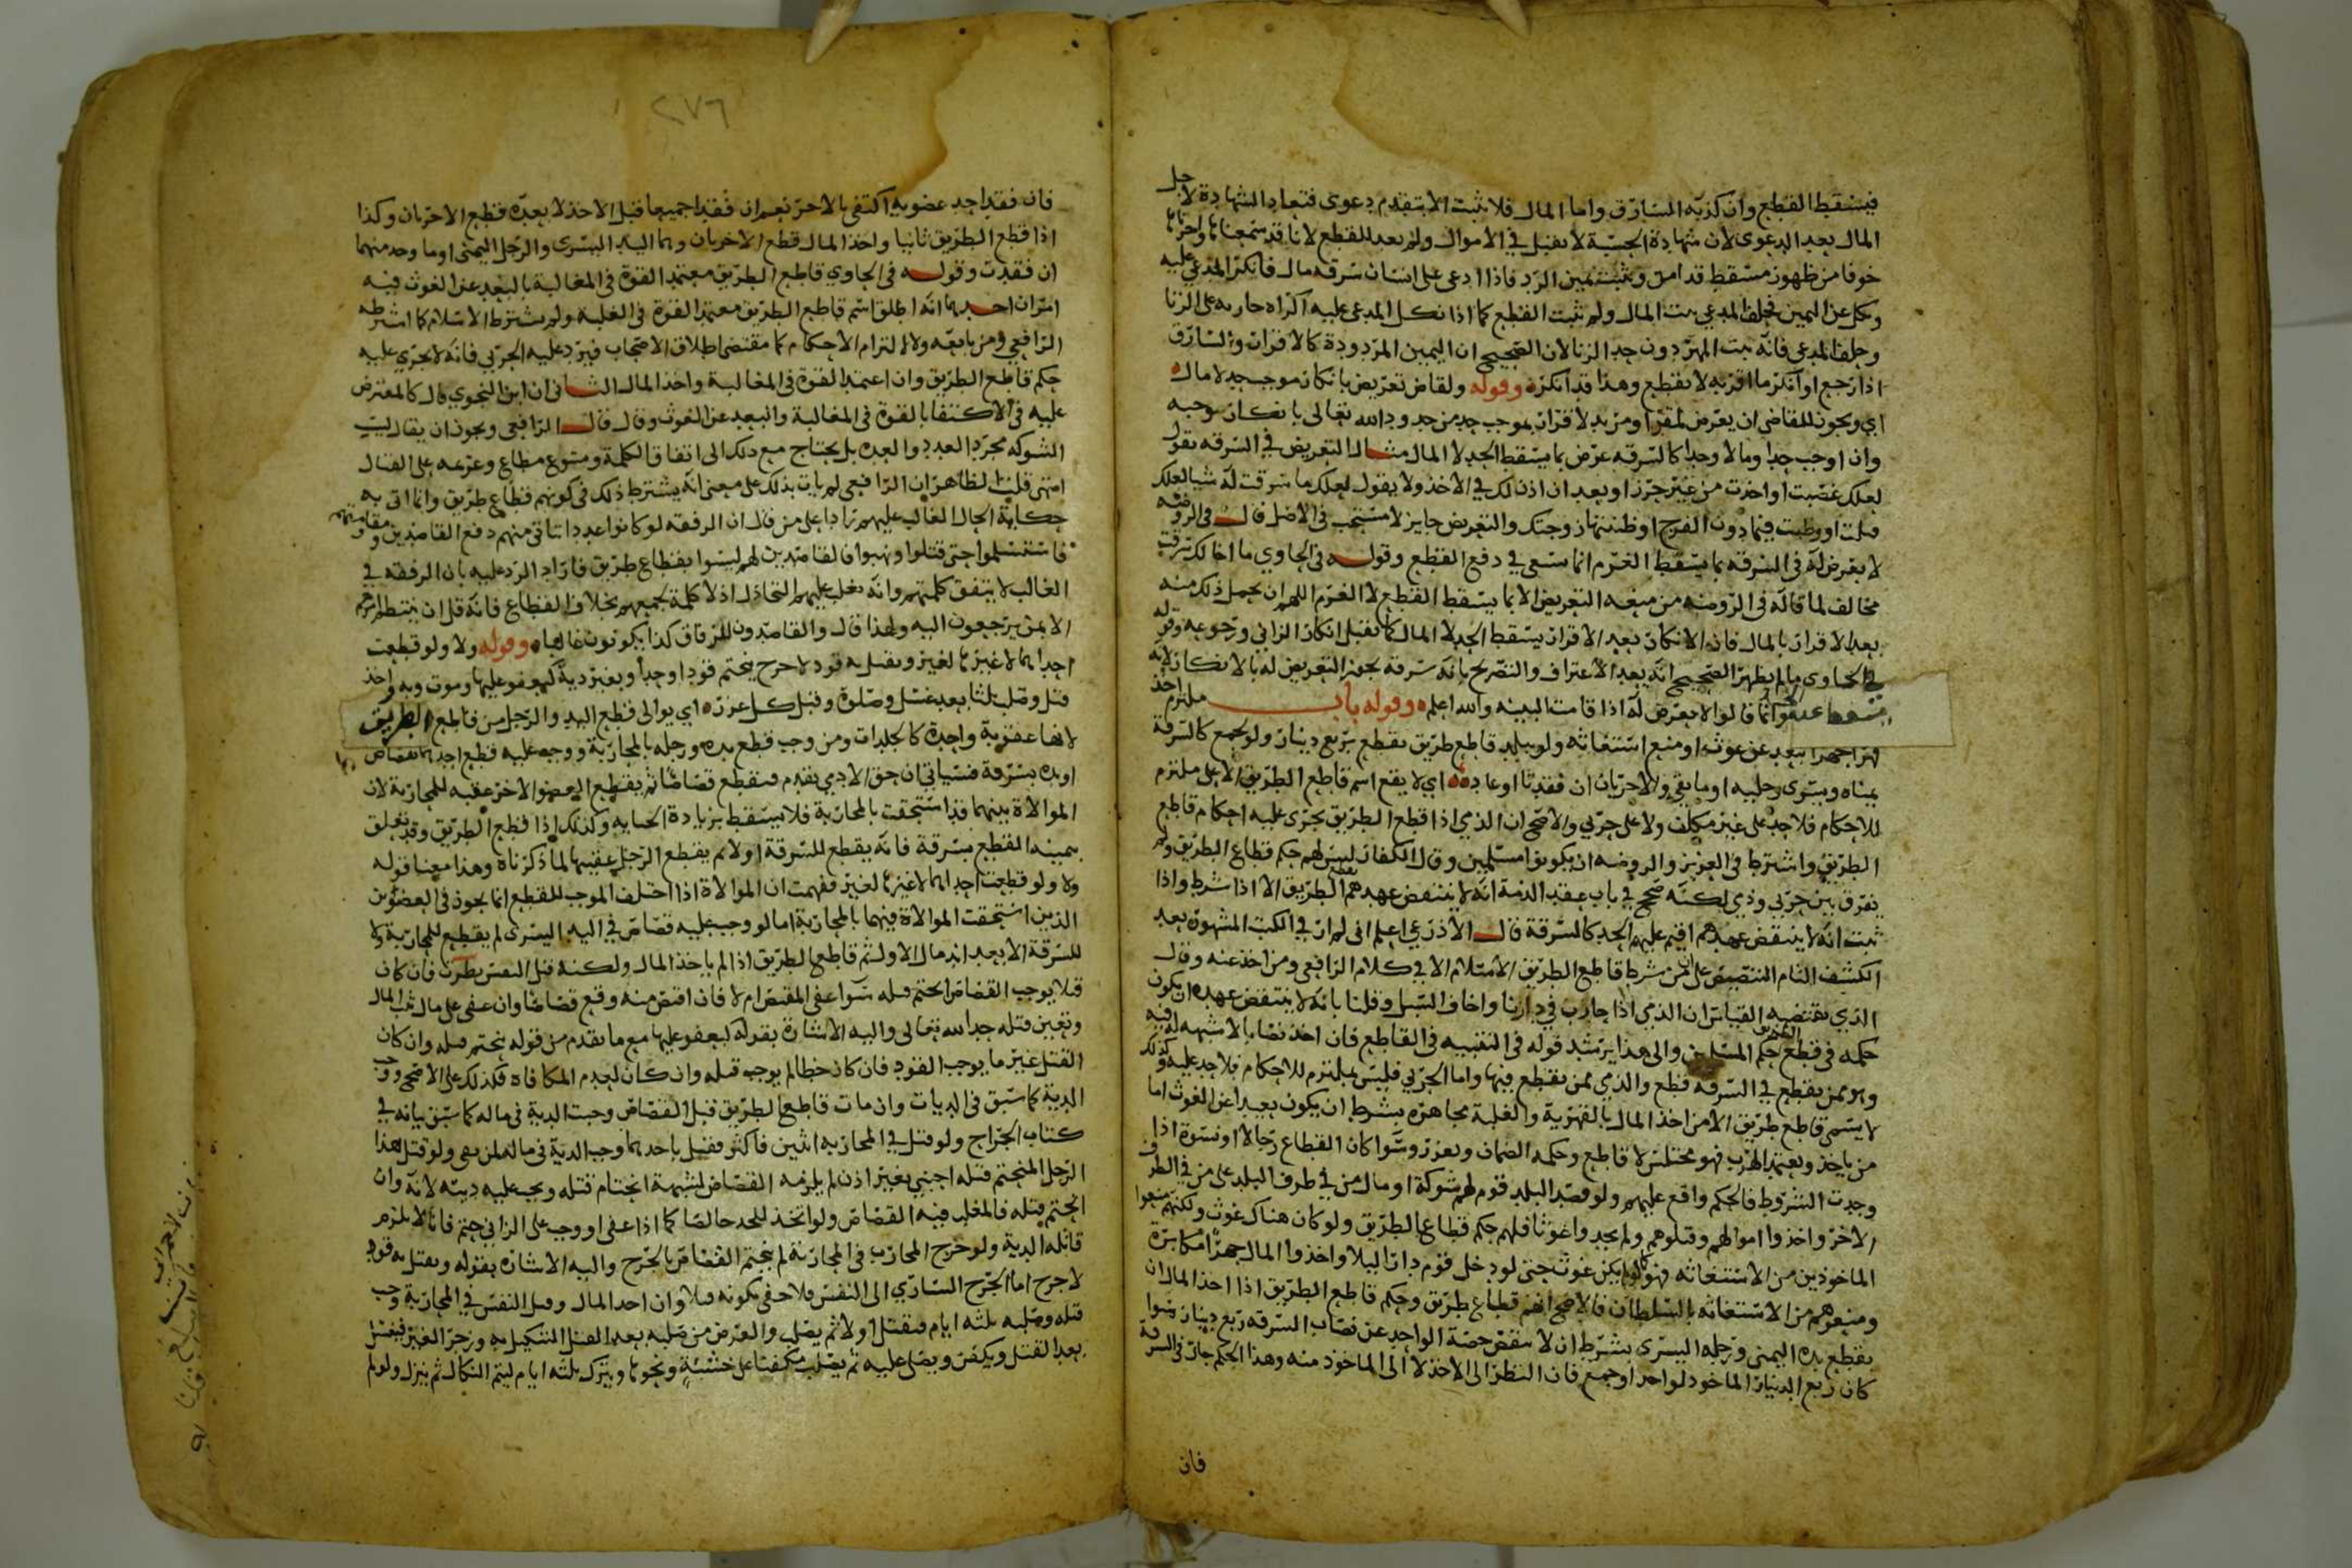 فيسقط القطع وان كذبه السارق واما المال فلا يثبت الا بتقدم دعوى فتعاد الشهادة لاجل
المال بعد الدعوى لان شهادة الحسبة لا تقبل في الاموال ولم يعد للقطع لانا قد سمعناها واخرناها
خوفا من ظهور مسقط قد امن ويثبت بيمين الرد فاذا ادعى على انسان سرقه مال فانكر المدعى عليه
ونكل عن اليمين فحلف المدعي ثبت المال ولم يثبت القطع كما اذا نكل المدعى عليه اكراه جاريه على الزنا
وحلف المدعي فانه يثبت المهر دون حد الزنا لان الصحيح ان اليمين المردودة كالاقرار والسارق
اذا رجع او انكر ما اقر به لا يقطع وهذا قد انكره وقوله ولقاض تعريض بانكار موجب حد لا مال
اي ويجوز للقاضي ان يعرض لمقرا ومريد لاقرار بموجب حد من حدود الله تعالى بانكار موجبه
وان اوجب حدا ومالا وحدا كالسرقه عرض بما يسقط الحد لا المال مثال التعريض في السرقه يقول
لعلك غصبت او اخذت من غير حرز او بعد ان اذن لك في الاخذ ولا يقول لعلك ما سرقت له شيا لعلك
قبلت او وطيت فيما دون الفرج او ظننتها زوجتك والتعريض جايز لا مستحب في الاصل قال في الروضه
لا يعرض له في السرقه بما يسقط الغرم انما يسعى في دفع القطع وقوله في الحاوي ما اخالك سرقت
مخالف لما قاله في الروضه من منعه التعريض الا بما يسقط القطع لا الغرم اللهم ان يحمل ذلك منه
بعد الاقرار بالمال فان الانكار بعد الاقرار يسقط الحد لا المال كما تقبل انكار الزاني ورجوعه وقوله
في الحاوي ما لم يظهر الصحيح انه بعد الاعتراف والتصريح بانه سرقة يجوز التعريض له بالانكار لانه
قالوا لا يعرض له اذا قامت البينه والله اعلم وقوله باب ملتزم اخذ
ببعد عن غوث او منع استغاثه ولو ببلد قاطع طريق يقطع بربع دينار ولو لجمع كالسرقة
يمناه ويسرى رجليه او ما بقي والاخريان ان فقدتا او عاد اي لا يقع اسم قاطع الطريق الا على ملتزم
للاحكام فلا حد على غير مكلف ولا على حربي والاصح ان الذمي اذا قطع الطريق يجرى عليه احكام قاطع
الطريق واشترط في العزيز والروضه ان يكونوا مسلمين وقال الكفار ليس لهم حكم قطاع الطريق ولم
يفرق بين حربي وذمي لكنه صحح في باب عقد الذمة انه لا ينتقض عهدهم بقطع الطريق الا اذا شرط واذا
ثبت انه لا ينتقض عهدهم اقيم عليهم الحد كالسرقة قال الاذرعي اعلم اني لم ار في الكتب المشهورة بعد
الكشف التام التنصيص على ان من شرط قاطع الطريق الاسلام الا في كلام الرافعي ومن اخذ عنه وقال
الذي يقتضيه القياس ان الذمي اذا حارب في دارنا واخاف السبيل وقلنا بانه لا ينتقض عهده ان يكون
حكمه في قطع الطريق حكم المسلمين والى هذا يرشد قوله في التنبيه في القاطع فان اخذ نصابا لا شبهه له فيه
وهو ممن يقطع في السرقه قطع والذمي ممن يقطع فيها واما الحربي فليس بملتزم للاحكام فلا حد عليه وكذلك
لا يسمى قاطع طريق الا من اخذ المال بالقهرية والغلبة مجاهره بشرط ان يكون بعيدا عن الغوث اما
من ياخذ ويعتمد الهرب فهو مختلس لا قاطع وحكمه الضمان ويعزر وسوا كان القطاع رجالا او نسوة اذا
وجدت الشروط فالحكم واقع عليهم ولو قصد البلد قوم لهم شوكة او مال من في طرف البلد على من في الطرف
الاخر واخذوا اموالهم وقتلوهم ولم يجدوا غوثا فلهم حكم قطاع الطريق ولو كان هناك غوث ولكنهم منعوا
الماخوذين من الاستغاثه فهو كما لو لم يكن غوث حتى لو دخل قوم دارا ليلا واخذوا المال جهرا مكابرة
ومنعوهم من الاستغاثه بالسلطان فالاصح انهم قطاع طريق وحكم قاطع الطريق اذا اخذ المال ان
يقطع يده اليمنى ورجله اليسرى بشرط ان لا ينقص حصة الواحد عن نصاب السرقه ربع دينار سوا
كان ربع الدينار الماخوذ لواحد او جمع فان النظر الى الاخذ لا الى الماخوذ منه وهذا الحكم جار في السرقة
فان
٢٧٦
فان فقد احد عضويه اكتفى بالاخر نعم ان فقدا جميعا قبل الاخذ لا بعده قطع الاخريان وكذا
اذا قطع الطريق ثانيا واخذ المال قطع الاخريان وهما اليد اليسرى والرجل اليمنى او ما وجد منهما
ان فقدت وقوله في الحاوي قاطع الطريق معتمد القوة في المغالبة بالبعد عن الغوث فيه
امران احدهما انه اطلق اسم قاطع الطريق معتمد القوة في الغلبه ولم يشترط الاسلام كما اشترطه
الرافعي ومن تابعه ولا التزام الاحكام كما مقتضى اطلاق الاصحاب فيرد عليه الحربي فانه لا يجري عليه
حكم قاطع الطريق وان اعتمد القوة في المغالبة واخذ المال الثاني ان ابن النحوي قال كالمعترض
عليه في الاكتفا بالقوة في المغالبة والبعد عن الغوث وقال قال الرافعي ويجوز ان يقال ليست
الشوكه مجرد العدد والعده بل يحتاج مع ذلك الى اتفاق الكلمة ومتبوع مطاع وعزمه على القتال
انتهى قلت الظاهر ان الرافعي لم يات بذلك على معنى انه يشترط ذلك في كونهم قطاع طريق وانما اتى به
حكاية الحال الغالب عليهم رادا على من قال ان الرفقه لو كانوا عددا يتاتى منهم دفع القاصدين ومقاومتهم
فاستسلموا حتى قتلوا ونهبوا فالقاصدين لهم ليسوا بقطاع طريق فاراد الرد عليه بان الرفقه في
الغالب لا يتفق كلمتهم وانه يغلب عليهم التخاذل اذ لا كلمة تجمعهم بخلاف القطاع فانه قل ان ينتظم امرهم
الا بمن يرجعون اليه ولهذا قال والقاصدون للرفاق كذا يكونون غالبا وقوله ولا ولو قطعت
احداهما لا غيرها لغير ويقتل به قود لا جرح يختم قودا وحدا وبغير دية كهو عليها وموت وبه واخذ
قتل وصلب ثلثا بعد غسل وصلوة وقبل كل عزر اي يوالى قطع اليد والرجل من قاطع الطريق
لانها عقوبة واحدة كالجلدات ومن وجب قطع يده ورجله بالمحاربة ووجب عليه قطع احداهما بقصاص
او يده بسرقة فسياتي ان حق الادمي يقدم فيقطع قصاصا ثم يقطع العضو الاخر عقبه للمحاربة لان
الموالاة بينهما قد استحقت بالمحاربة فلا يسقط بزيادة الجنايه وكذلك اذا قطع الطريق وقد تعلق
بيمينه القطع بسرقة فانه يقطع للسرقة اولا ثم يقطع الرجل عقبها لما ذكرناه وهذا معنا قوله
ولا ولو قطعت احداهما لا غيرها لغير ففهمت ان الموالاة اذا اختلف الموجب للقطع انما يجوز في العضوين
الذين استحقت الموالاة فيهما بالمحاربة اما لو وجب عليه قصاص في اليد اليسرى لم يقطع للمحاربة ولا
للسرقة الا بعد اندمال الاول ثم قاطع الطريق اذا لم ياخذ المال ولكنه قتل النفس نظرت فان كان
قتلا يوجب القصاص انحتم قتله سوا عفى المقتص ام لا فان اقتص منه وقع قصاصا وان عفى على مال ثبت المال
وتعين قتله حدا لله تعالى واليه الاشارة بقوله كهو عليها مع ما تقدم من قوله يختم قتله وان كان
القتل غير ما يوجب القود فان كان خطا لم يوجب قتله وان كان لعدم المكافاه فكذلك على الاصح ووجب
الدية كما سبق في الديات وان مات قاطع الطريق قبل القصاص وجبت الدية في ماله كما سبق بيانه في
كتاب الجراح ولو قتل في المحاربه اثنين فاكثر فقتل باحدهما وجب الدية في ماله لمن بقي ولو قتل هذا
الرجل المنحتم قتله اجنبي بغير اذن لم يلزمه القصاص لشبهة انحتام قتله ويجب عليه ديته لانه وان
انحتم قتله فالمغلب فيه القصاص ولو اتخذ للحد خالصا كما اذا عفى او وجب على الزاني حتم فانه لا يلزم
قاتله الدية ولو جرح المحارب في المحاربة لم ينحتم القصاص بالجرح واليه الاشاره بقوله ويقتل به قود
لا جرح اما الجرح الساري الى النفس فلا خفى بكونه قتلا وان اخذ المال وقتل النفس في المحاربة وجب
قتله وصلبه ثلثه ايام فيقتل اولا ثم يصلب والغرض من صلبه بعد القتل التنكيل به وزجر الغير فيغسل
بعد القتل ويكفن ويصلى عليه ثم يصلب مكفنا على خشبة ونحوها ويترك ثلثه ايام ليتم النكال ثم ينزل ولو لم